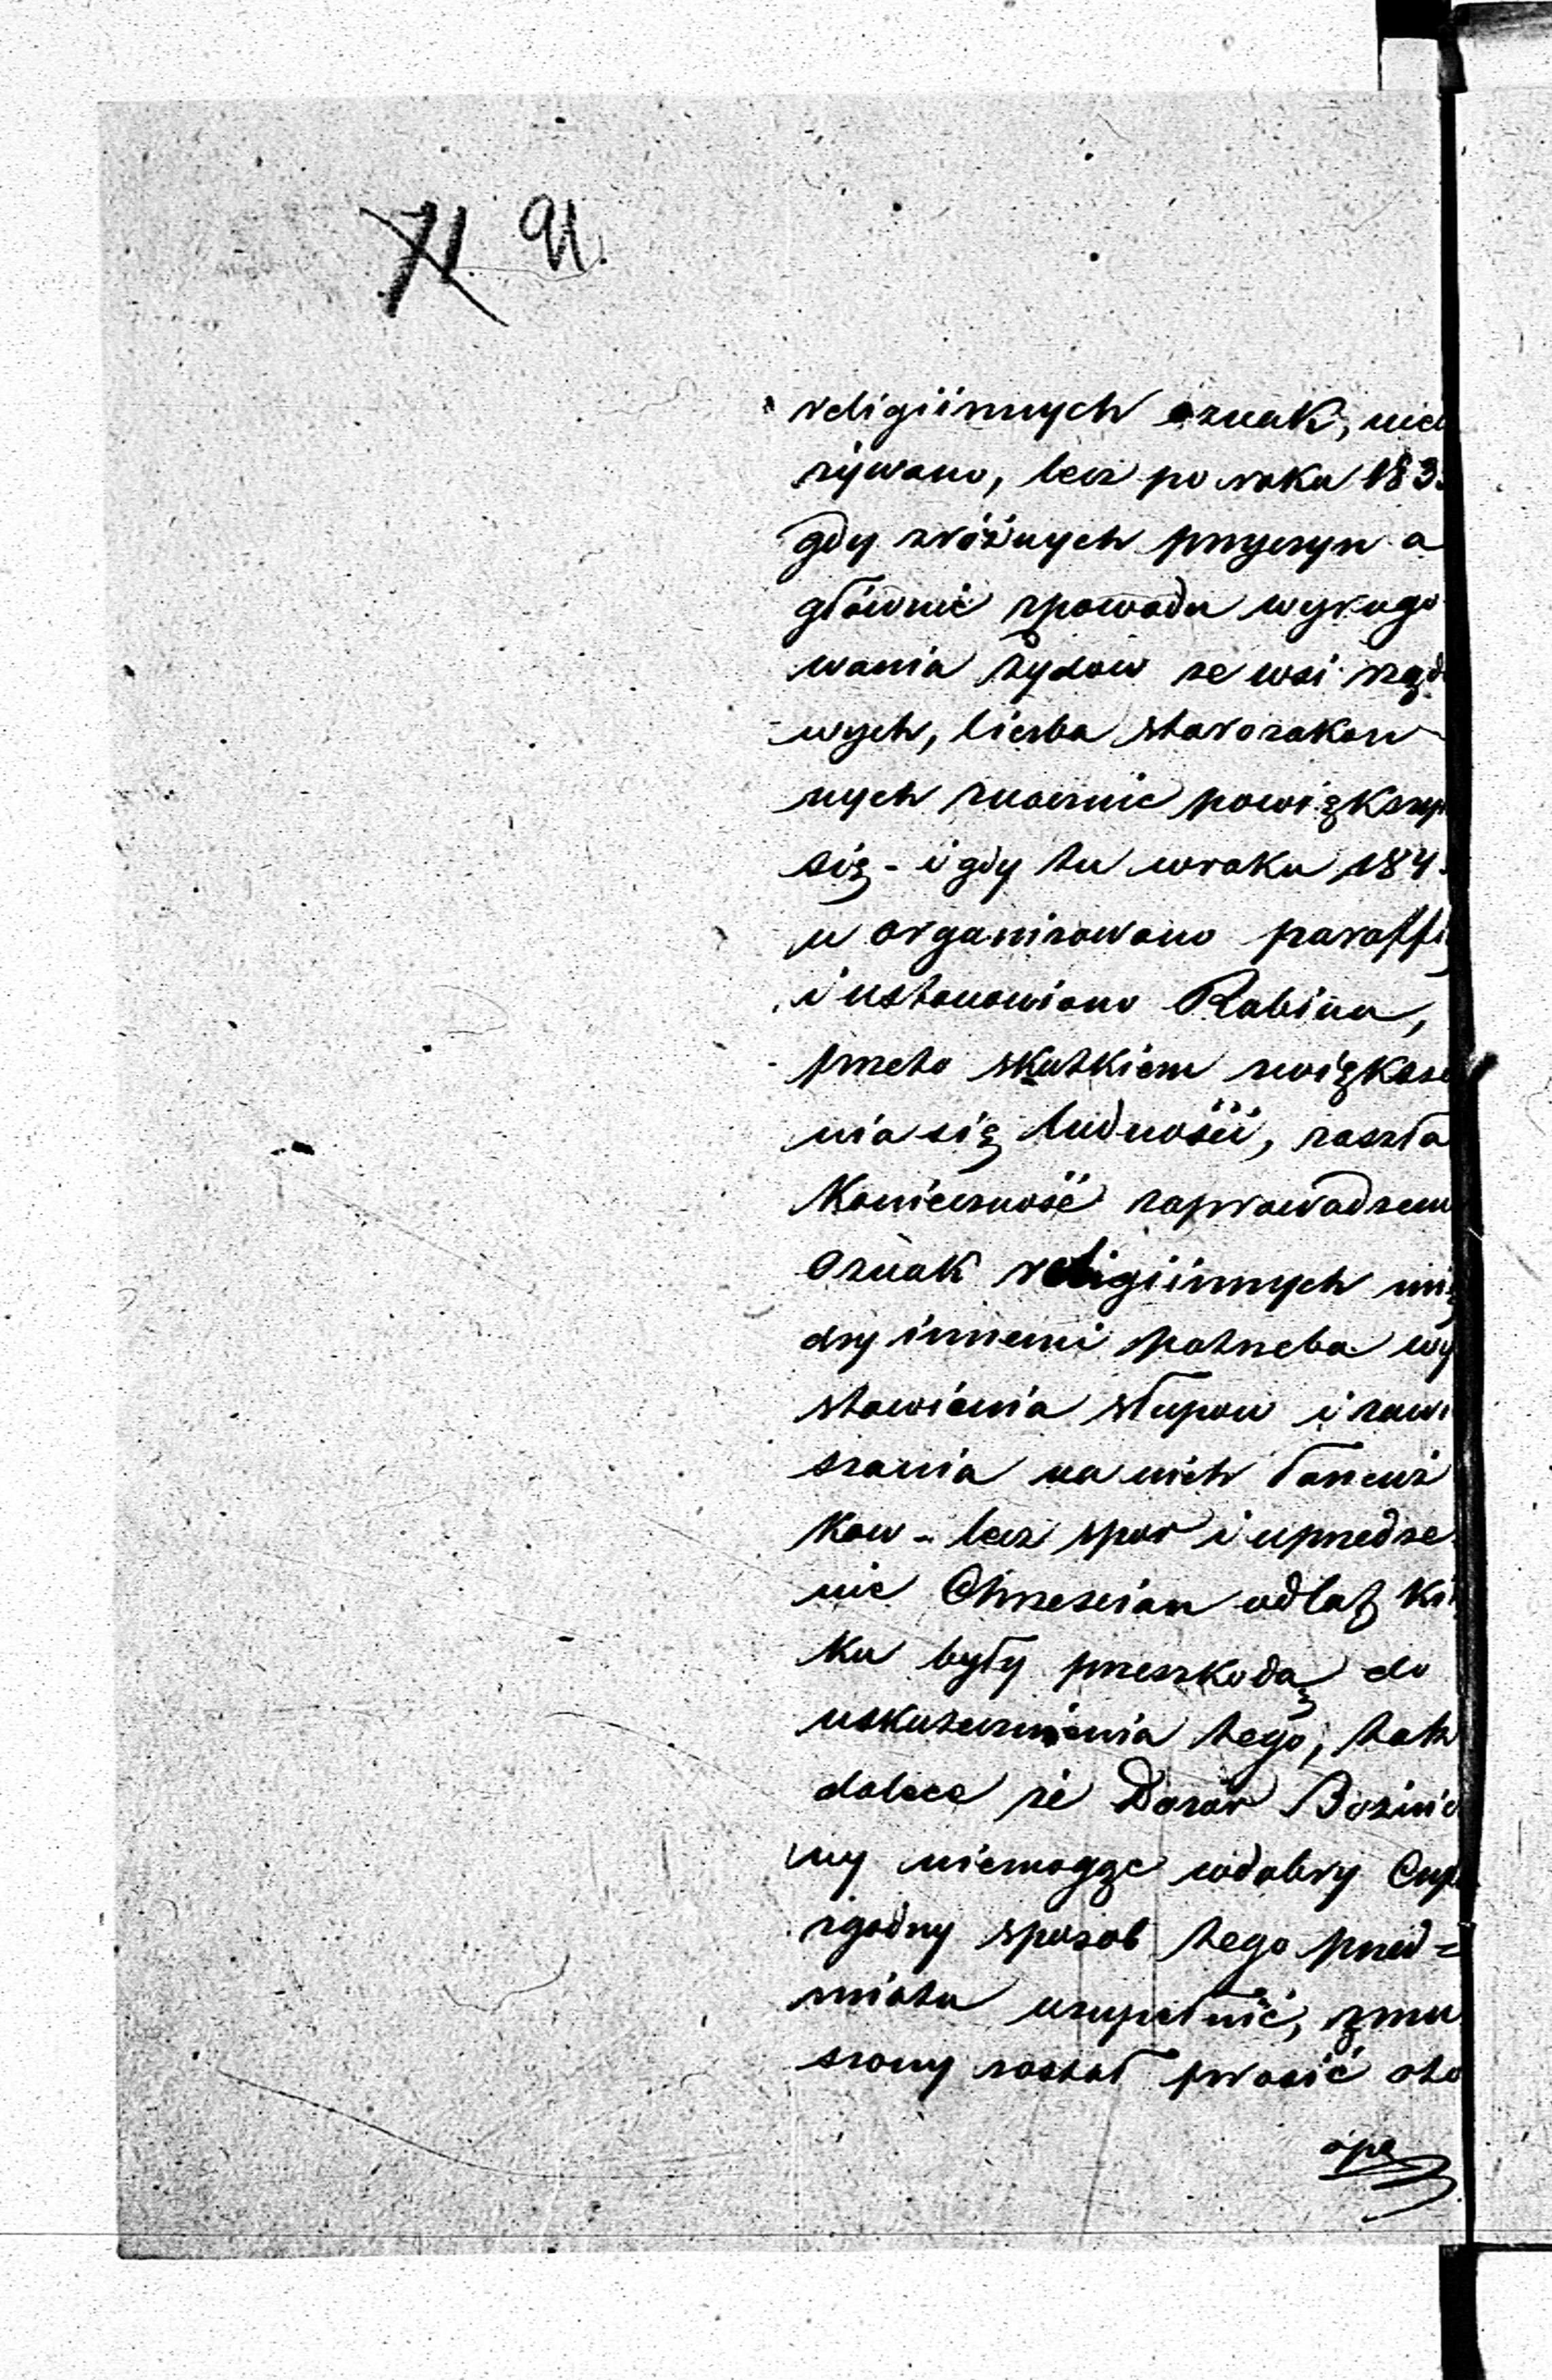 71 91.
religiinnych oznak, nie
żywano, lecz po roku 183
gdy zróżnych przyczyn a
głównie zpowodu wyrugo
wania żydow ze wsi rządo
wych, liczba starozakon
nych znacznie powiększy
się - i gdy tu wroku 184
u organizowano paraffi
i ustanowiono Rabina,
przeto skutkiem zwiększe
nia się ludności, zaszła
Konieczność zaprowadzen
Oznak religiinnych mię
dzy innemi potrzeba wy
stawienia słupow i zawi
szania na nich łańcusz
kow - lecz spor i uprzedze
nie Chrzescian odlat Kil
ku były przeszkodą do
uskutecznienia tego, tak
dalece że Dozór Bożnic
ny niemogąc wdobry
zgodny sposob tego przed=
miotu uzupełnić, zmu
szony został prosić oto
opa